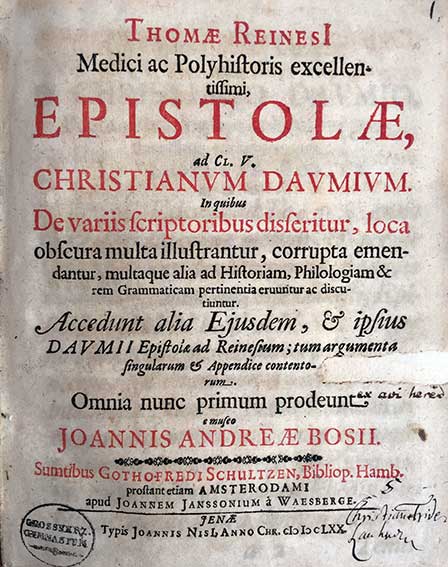 THOMÆ REINESI
Medici ac Polyhistoris excellen-
tissimi,
EPISTOLÆ,
ad CL. V.
CHRISTIANVM DAVMIVM.
In quibus
De variis scriptoribus disseritur, loca
obscura multa illustrantur, corrupta emen-
dantur, multaque alia ad Historiam, Philologiam &
rem Grammaticam pertinentia eruuntur ac discu-
tiuntur.
Accedunt alia Ejusdem, & ipsius
DAVMII Epistolæ ad Reinesium; tum argumenta
singularum & Appendice contento-
rum.
Omnia nunc primum prodeunt
ex avi hered
e museo
JOANNIS ANDREÆ BOSII.
Sumtibus GOTHOFREDI SCHULTZEN, Bibliop. Hamb.
prostant etiam AMSTERODAMI
apud JOANNEM JANSSONIUM à WAESBERGE.
JENÆ
Typis JOANNIS NISI, ANNO CHR. cIɔ Iɔc LXX.
GROSSHERZ.
GYMNASIUM